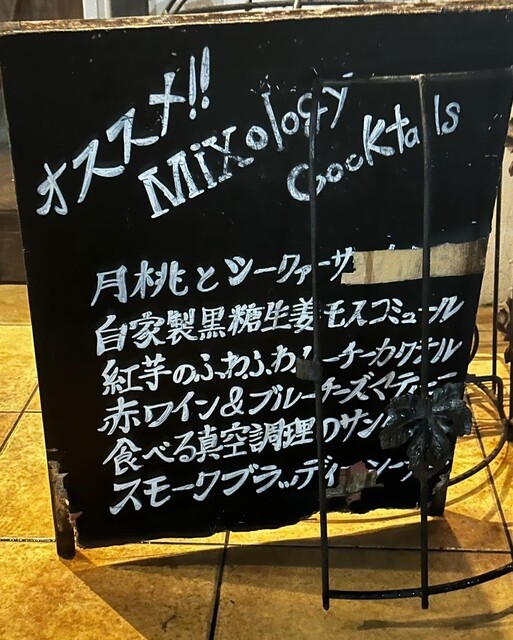 オススメ!!
MiXology
Cocktails
月桃とシークァーサ
自家製黒糖生姜モスコミュール
紅芋のふわふわ ーチーカクテル
赤ワイン&ブルーチーズマティーニ
食べる真空調理のサン
スモークブラッディー シーザー